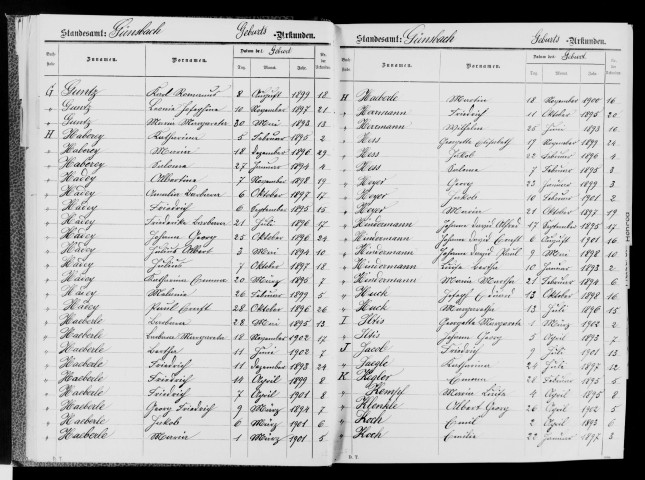 Standesamt: Günsbach Geburts-Urkunden.
Buchstabe Zunamen. Vornamen. Datum der: Geburt No. der Urkunden
Tag. Monat. Jahr.
G Guntz Karl Romuald 8 August 1899 18
" Guntz Leonie Josephine 10 November 1897 21
" Guntz Maria Margareta 30 Mai 1895 12
H Haberey Katharina 5 Februar 1895 2
" Haberey Maria 18 Dezember 1896 29
" Haberey Salome 27 Januar 1894 4
" Härey Albertine 7 November 1898 19
" Härey Amalie Barbara 6 Oktober 1897 17
" Härey Friedrich 6 September 1895 15
" Härey Friederike Barbara 21 Juli 1896 17
" Härey Johann Georg 25 Oktober 1896 24
" Härey Julius Albert 3 Mai 1894 10
" Härey Julius 7 Oktober 1897 18
" Härey Katharina Emma 20 März 1895 7
" Härey Mathilde 26 Februar 1899 5
" Härey Paul Ernst 28 Oktober 1896 26
" Haeberle Barbara 28 Mai 1895 13
" Haeberle Barbara Margareta 12 November 1902 17
" Haeberle Bertha 11 Juni 1902 7
" Haeberle Friedrich 11 Dezember 1893 24
" Haeberle Friedrich 14 April 1899 8
" Haeberle Friedrich 7 April 1901 8
" Haeberle Georg Friedrich 9 März 1894 7
" Haeberle Jakob 6 März 1901 6
" Haeberle Maria 1 März 1901 5
D. 7.
Standesamt: Günsbach Geburts-Urkunden.
Buchstabe Zunamen. Vornamen. Datum der: Geburt No. der Urkunden
Tag. Monat. Jahr.
H Haeberle Martin 18 November 1900 16
" Herrmann Friedrich 11 Oktober 1895 20
" Herrmann Wilhelm 25 Juni 1893 10
" Hess Georgette Elisabeth 19 November 1899 24
" Hess Jakob 22 Februar 1896 4
" Hess Salome 7 Februar 1895 3
" Heyer Georg 23 Januar 1899 3
" Heyer Jakob 10 Februar 1901 2
" Heyer Maria 21 Oktober 1897 19
" Hindermann Johann Daniel Alfred 17 September 1895 17
" Hindermann Johann Daniel Ernst 6 August 1901 16
" Hindermann Johann Daniel Paul 9 Mai 1898 10
" Hindermann Luise Bertha 10 Januar 1893 2
" Hindermann Maria Martha 21 Februar 1894 6
" Huck Joseph Eduard 13 Oktober 1898 16
" Huck Margaretha 13 Juli 1896 15
I Iltis Georgette Margareta 1 März 1902 2
" Iltis Johann Georg 5 April 1893 7
J Jacob Friedrich 9 Juli 1901 13
" Jaegle Katharina 24 Juli 1897 12
K Kegler Emma 21 Februar 1893 5
" Kempf Maria Luise 4 April 1895 8
" Klenkle Albert Georg 26 April 1902 5
" Koch Emil 2 April 1893 6
" Koch Emilie 22 Januar 1897 3
D. 7.